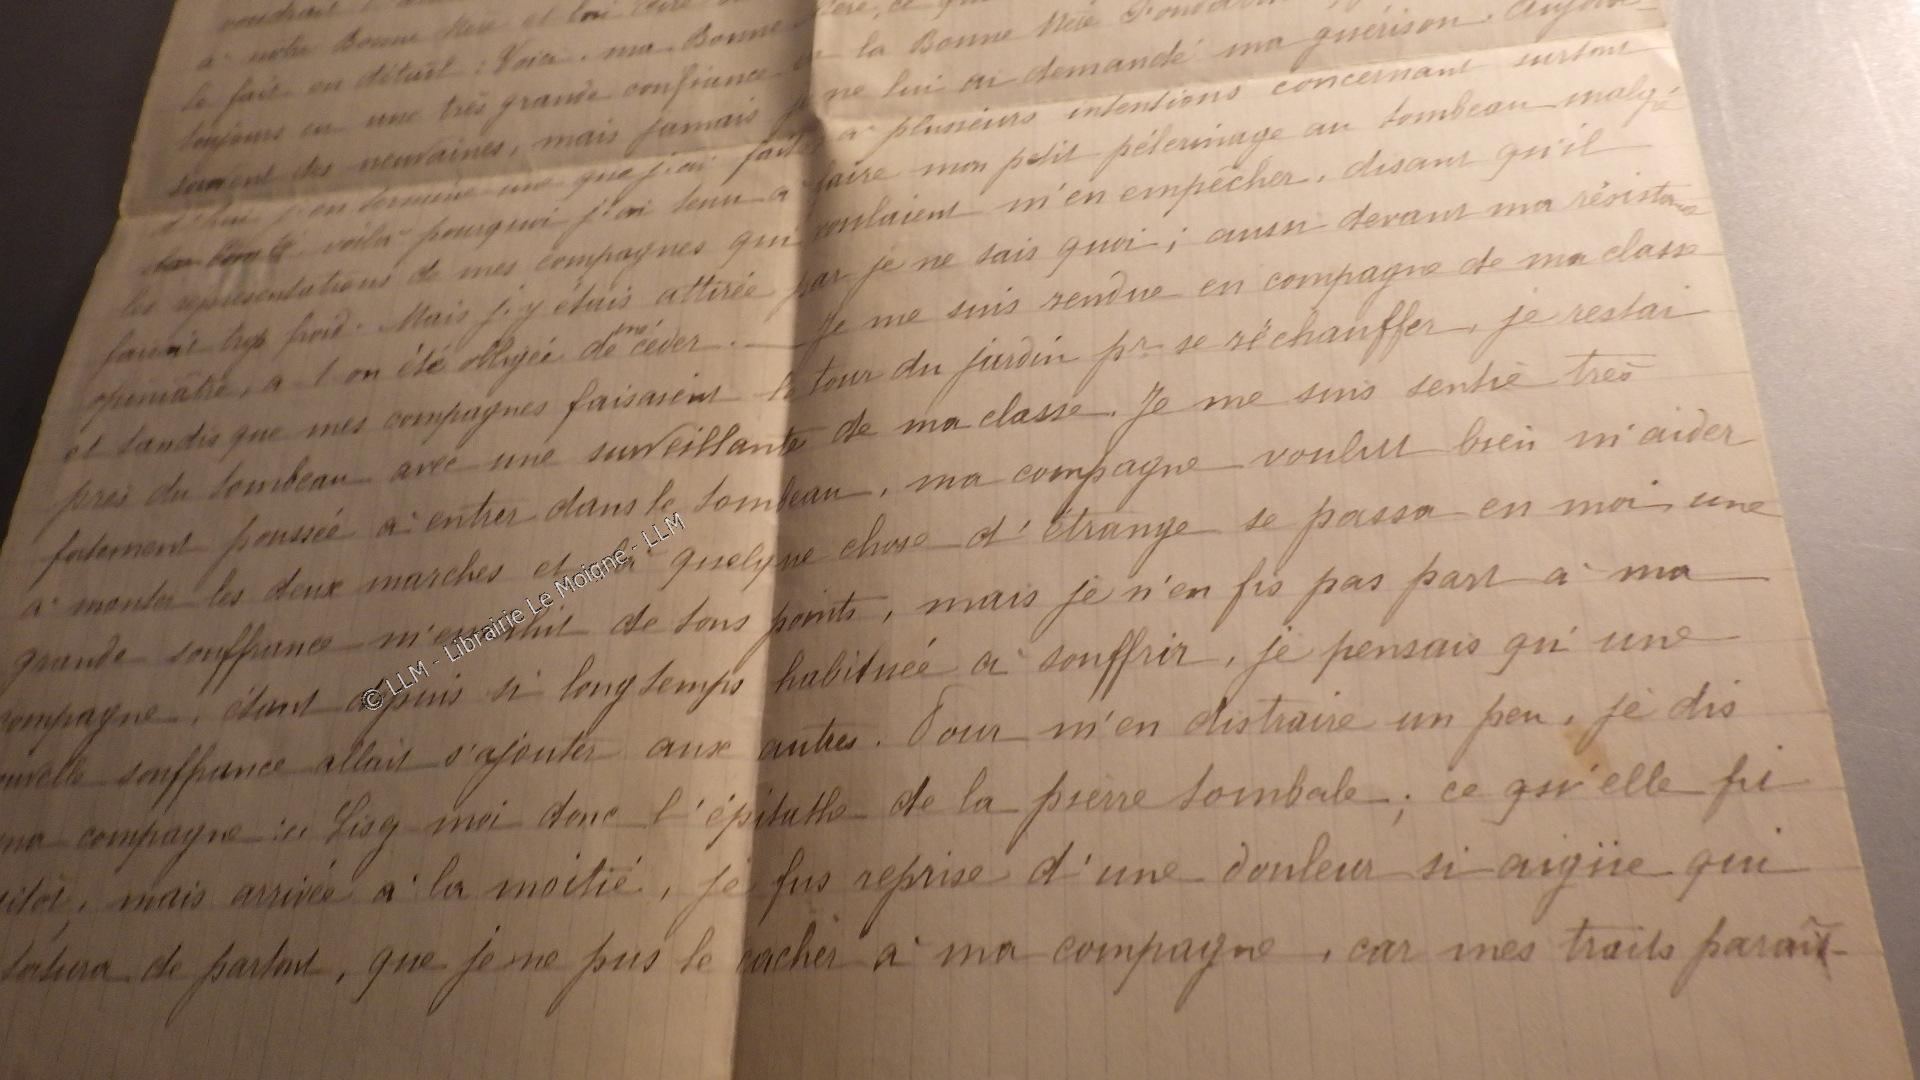 à notre Bonne Mère et lui dire
le fait en détail : Voici, ma Bonne Mère, ce
toujours eu une très grande confiance en la Bonne Mère
souvent des neuvaines, mais jamais je ne lui ai demandé ma guérison. Aujour-
d'hui j'en termine une que j'ai faite à plusieurs intentions concernant surtout
voilà pourquoi j'ai tenu à faire mon petit pélerinage au tombeau malgré
les représentations de mes compagnes qui voulaient m'en empêcher, disant qu'il
faisait trop froid. Mais j'y étais attirée par je ne sais quoi ; aussi devant ma résistance
opiniâtre, a t on été obligée de me céder. — Je me suis rendue en compagne de ma classe
et tandis que mes compagnes faisaient le tour du jardin pr se réchauffer, je restai
près du tombeau avec une surveillante de ma classe. Je me suis sentie très
fortement poussée à entrer dans le tombeau, ma compagne voulut bien m'aider
à monter les deux marches et là quelque chose d'étrange se passa en moi, une
grande souffrance m'envahit de tous points, mais je n'en fis pas part à ma
compagne, étant depuis si longtemps habituée à souffrir, je pensais qu'une
nouvelle souffrance allait s'ajouter aux autres. Pour m'en distraire un peu, je dis
ma compagne : " Lisez moi donc l'épitathe de la pierre tombale ; ce qu'elle fi
mais arrivée à la moitié, je fus reprise d'une douleur si aigüe qui
de partout, que je ne pus le cacher à ma compagne, car mes traits parait-
© LLM - Librairie Le Moigne - LLM